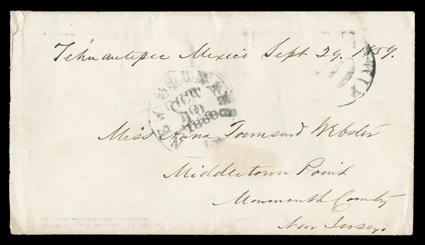 Tehuantepec Mexico Sept 29. 1859.
NEW ORLEANS
OCT
10
1859
Miss Anna Townsend Webster
Middletown Point
Monmouth County
New Jersey.